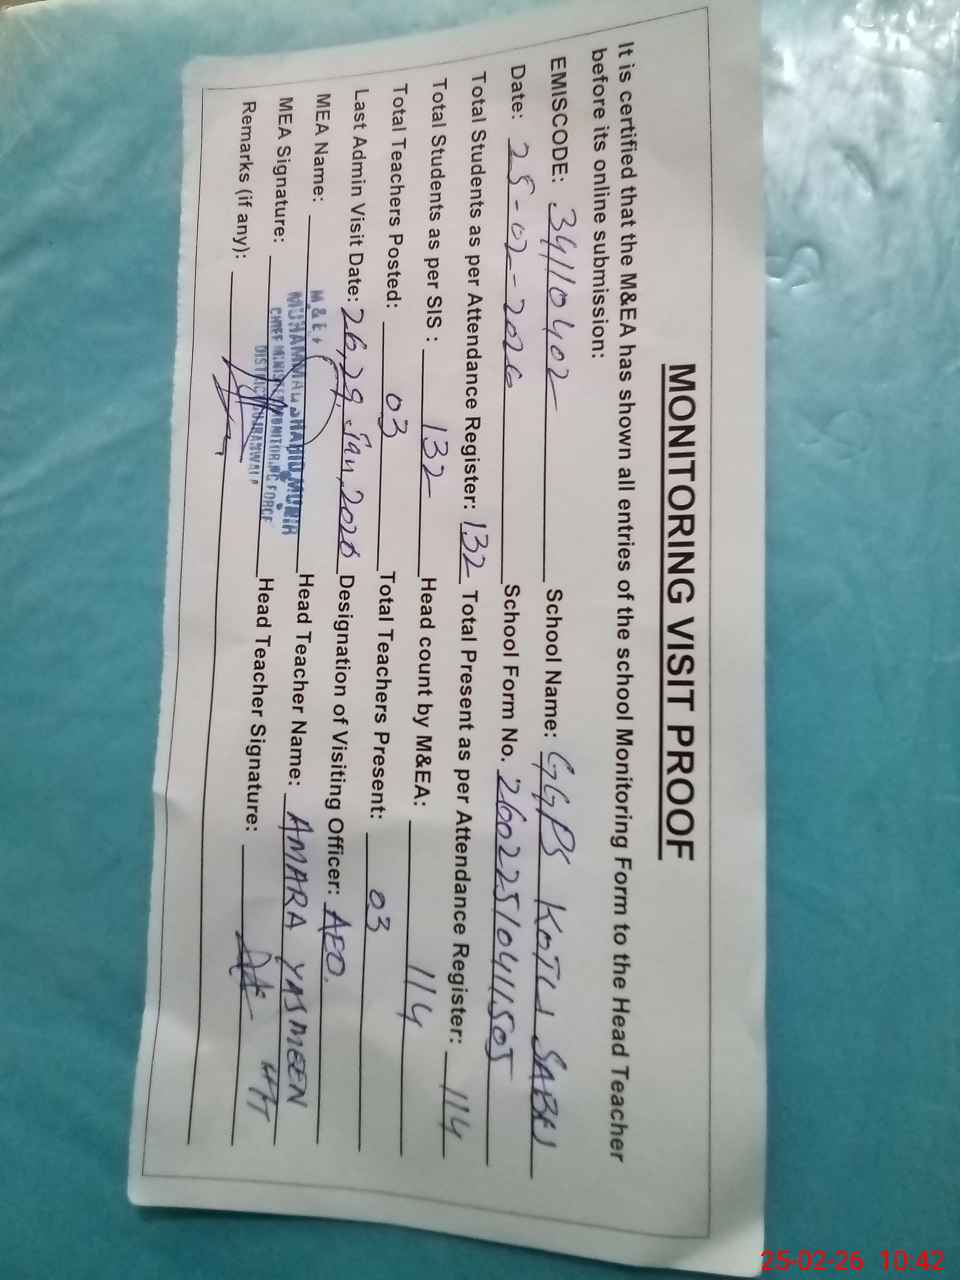 MONITORING VISIT PROOF
It is certified that the M&EA has shown all entries of the school Monitoring Form to the Head Teacher
before its online submission:
EMISCODE: 34110402 School Name: GGPS KOTLI SABKI
Date: 25-02-2026 School Form No. 260225104111505
Total Students as per Attendance Register: 132 Total Present as per Attendance Register: 114
Total Students as per SIS : 132 Head count by M&EA: 114
Total Teachers Posted: 03 Total Teachers Present: 03
Last Admin Visit Date: 26,29, Jan, 2026 Designation of Visiting Officer: AEO.
MEA Name: M & E MUHAMMAD SHAHID MUNIR Head Teacher Name: AMARA YASMEEN
MEA Signature: CHIEF MINISTER MONITORING FORCE Head Teacher Signature: HT
DISTRICT GUJRANWALA
Remarks (if any):
25-02-26 10:42